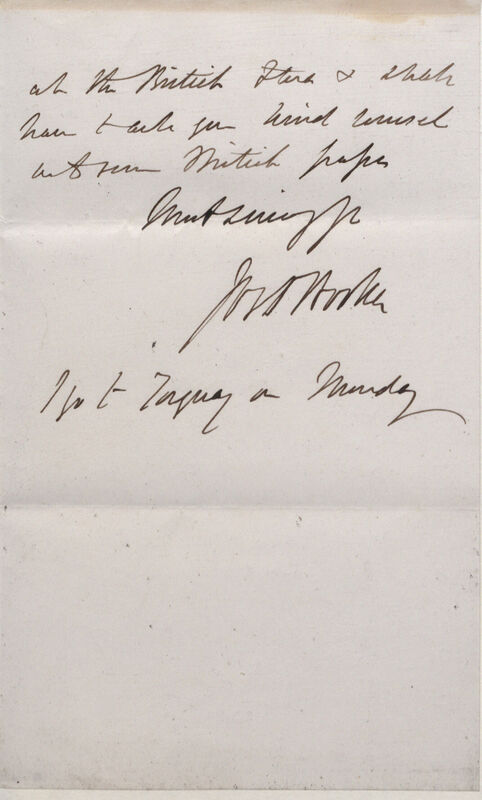 at the British Flora & shall
have to ask your kind counsel
as to some British papers
Most sincerely yr
Jos D Hooker
I go to Torquay on Monday